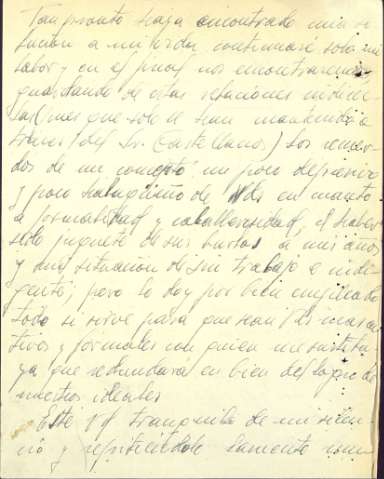 Tan pronto haya encontrado mi si-
tuación a mi orden continuaré sola mi
labor y en el final nos encontraremos
guardando de estas relaciones indirec-
tas (mas que solo se han mantenido a
traves del Sr. Castellanos) los recuer-
dos de un concepto un poco depresivo
y poco halagüeño de Vds en cuanto
a formalidad y caballerosidad, el haber
sido juguete de sus burlas a mis años
y mi situación de sin trabajo e indi-
gente; pero lo doy por bien empleado
todo si sirve para que sean Vds mas ac-
tivos y formales con quien me sustituya
ya que redundara en bien del logro de
nuestros ideales
Esté Vd tranquilo de mi silen-
cio y repitiéndole